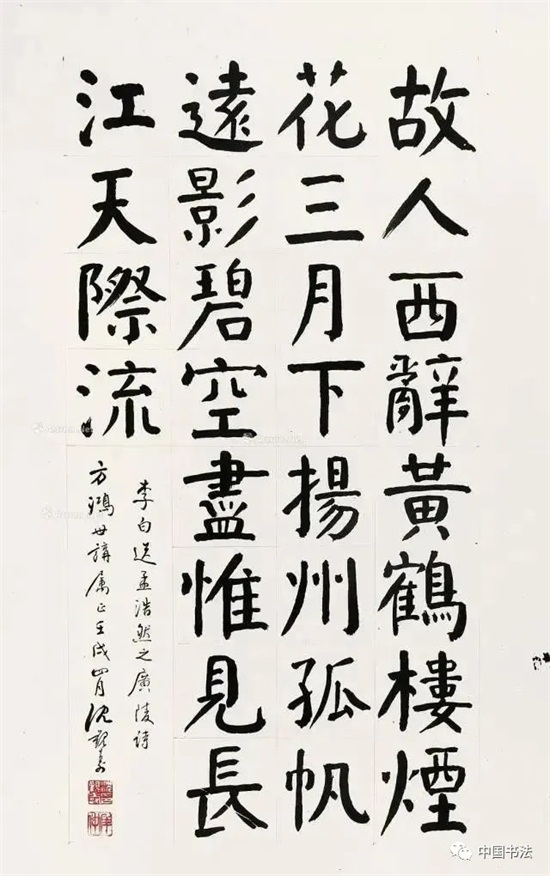 故人西辭黃鶴樓煙
花三月下揚州孤帆
遠影碧空盡惟見長
江天際流
李白送孟浩然之廣陵詩
方鴻世講屬正壬戌四月沈
中国书法